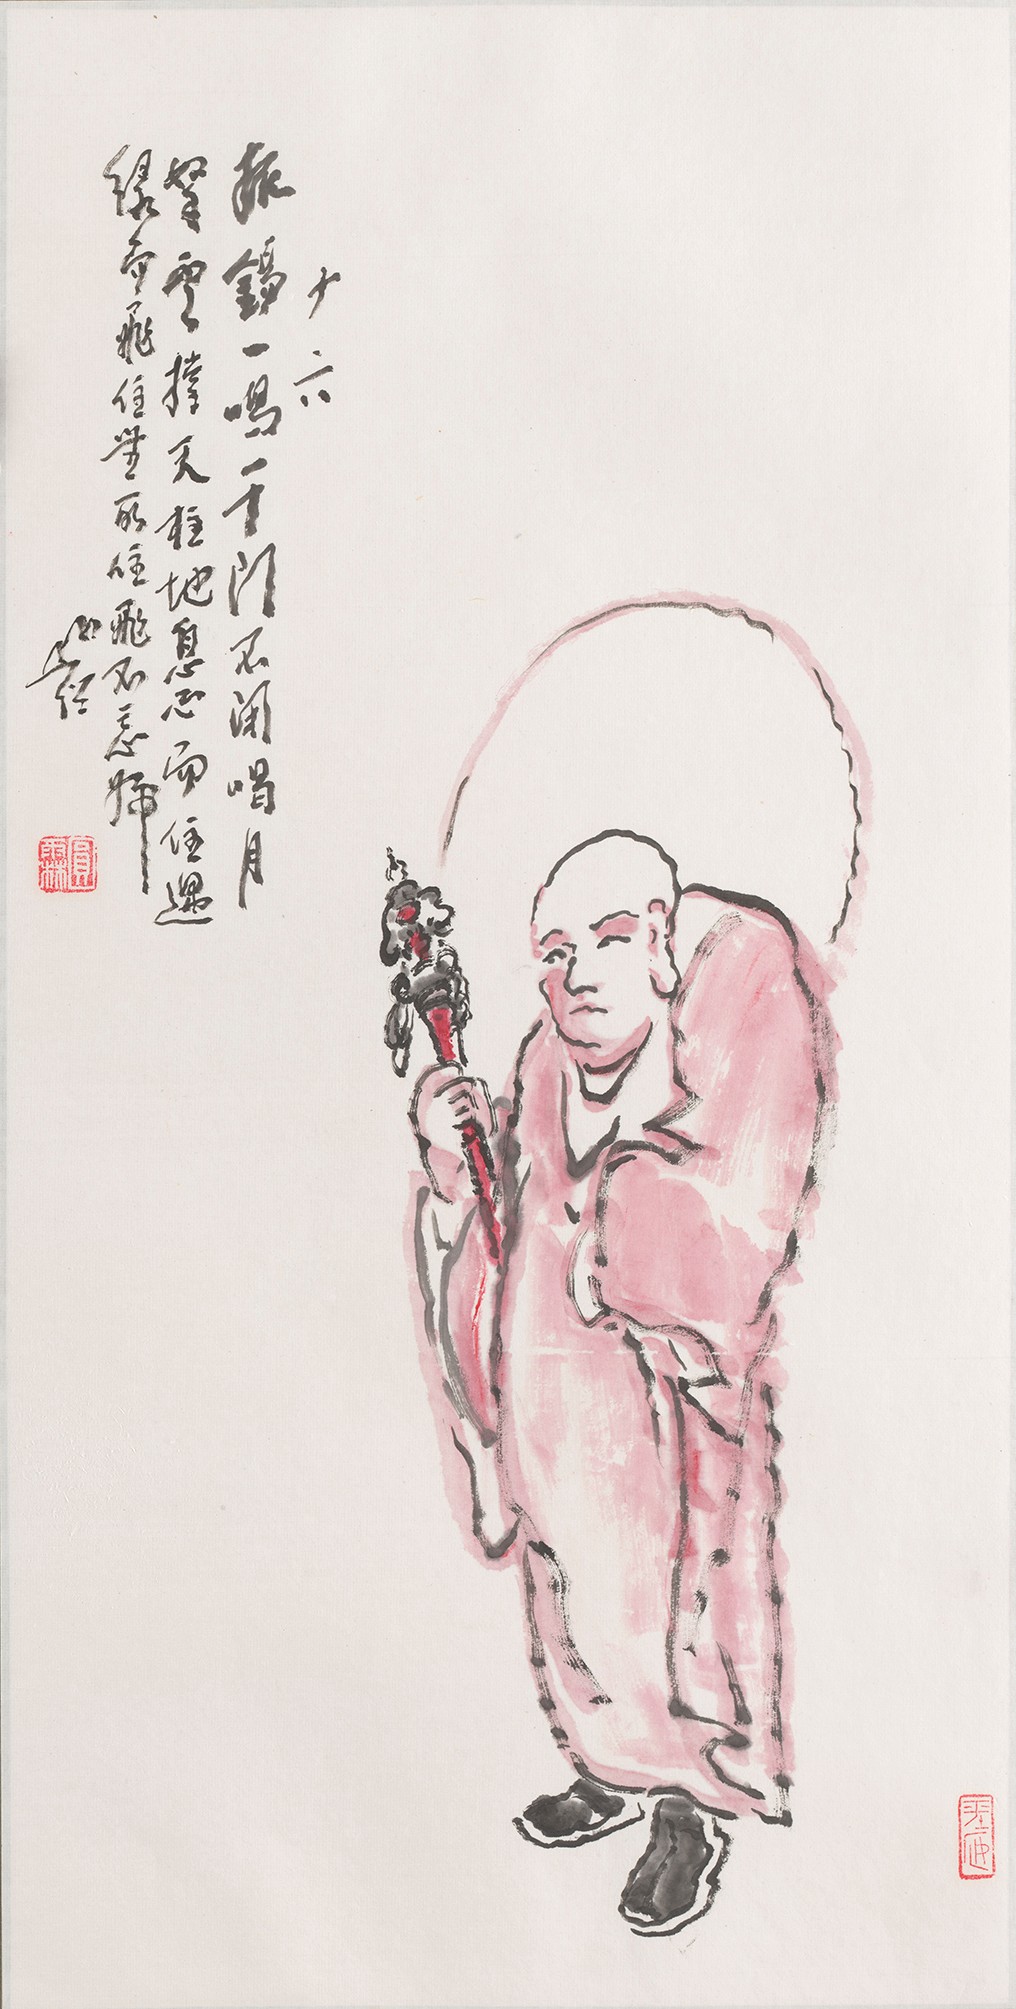 十六
振錫一鳴千門不閉唱月
拏雲撑天柱地息心而住遇
緣而飛住無所住飛不忘歸
圓霖